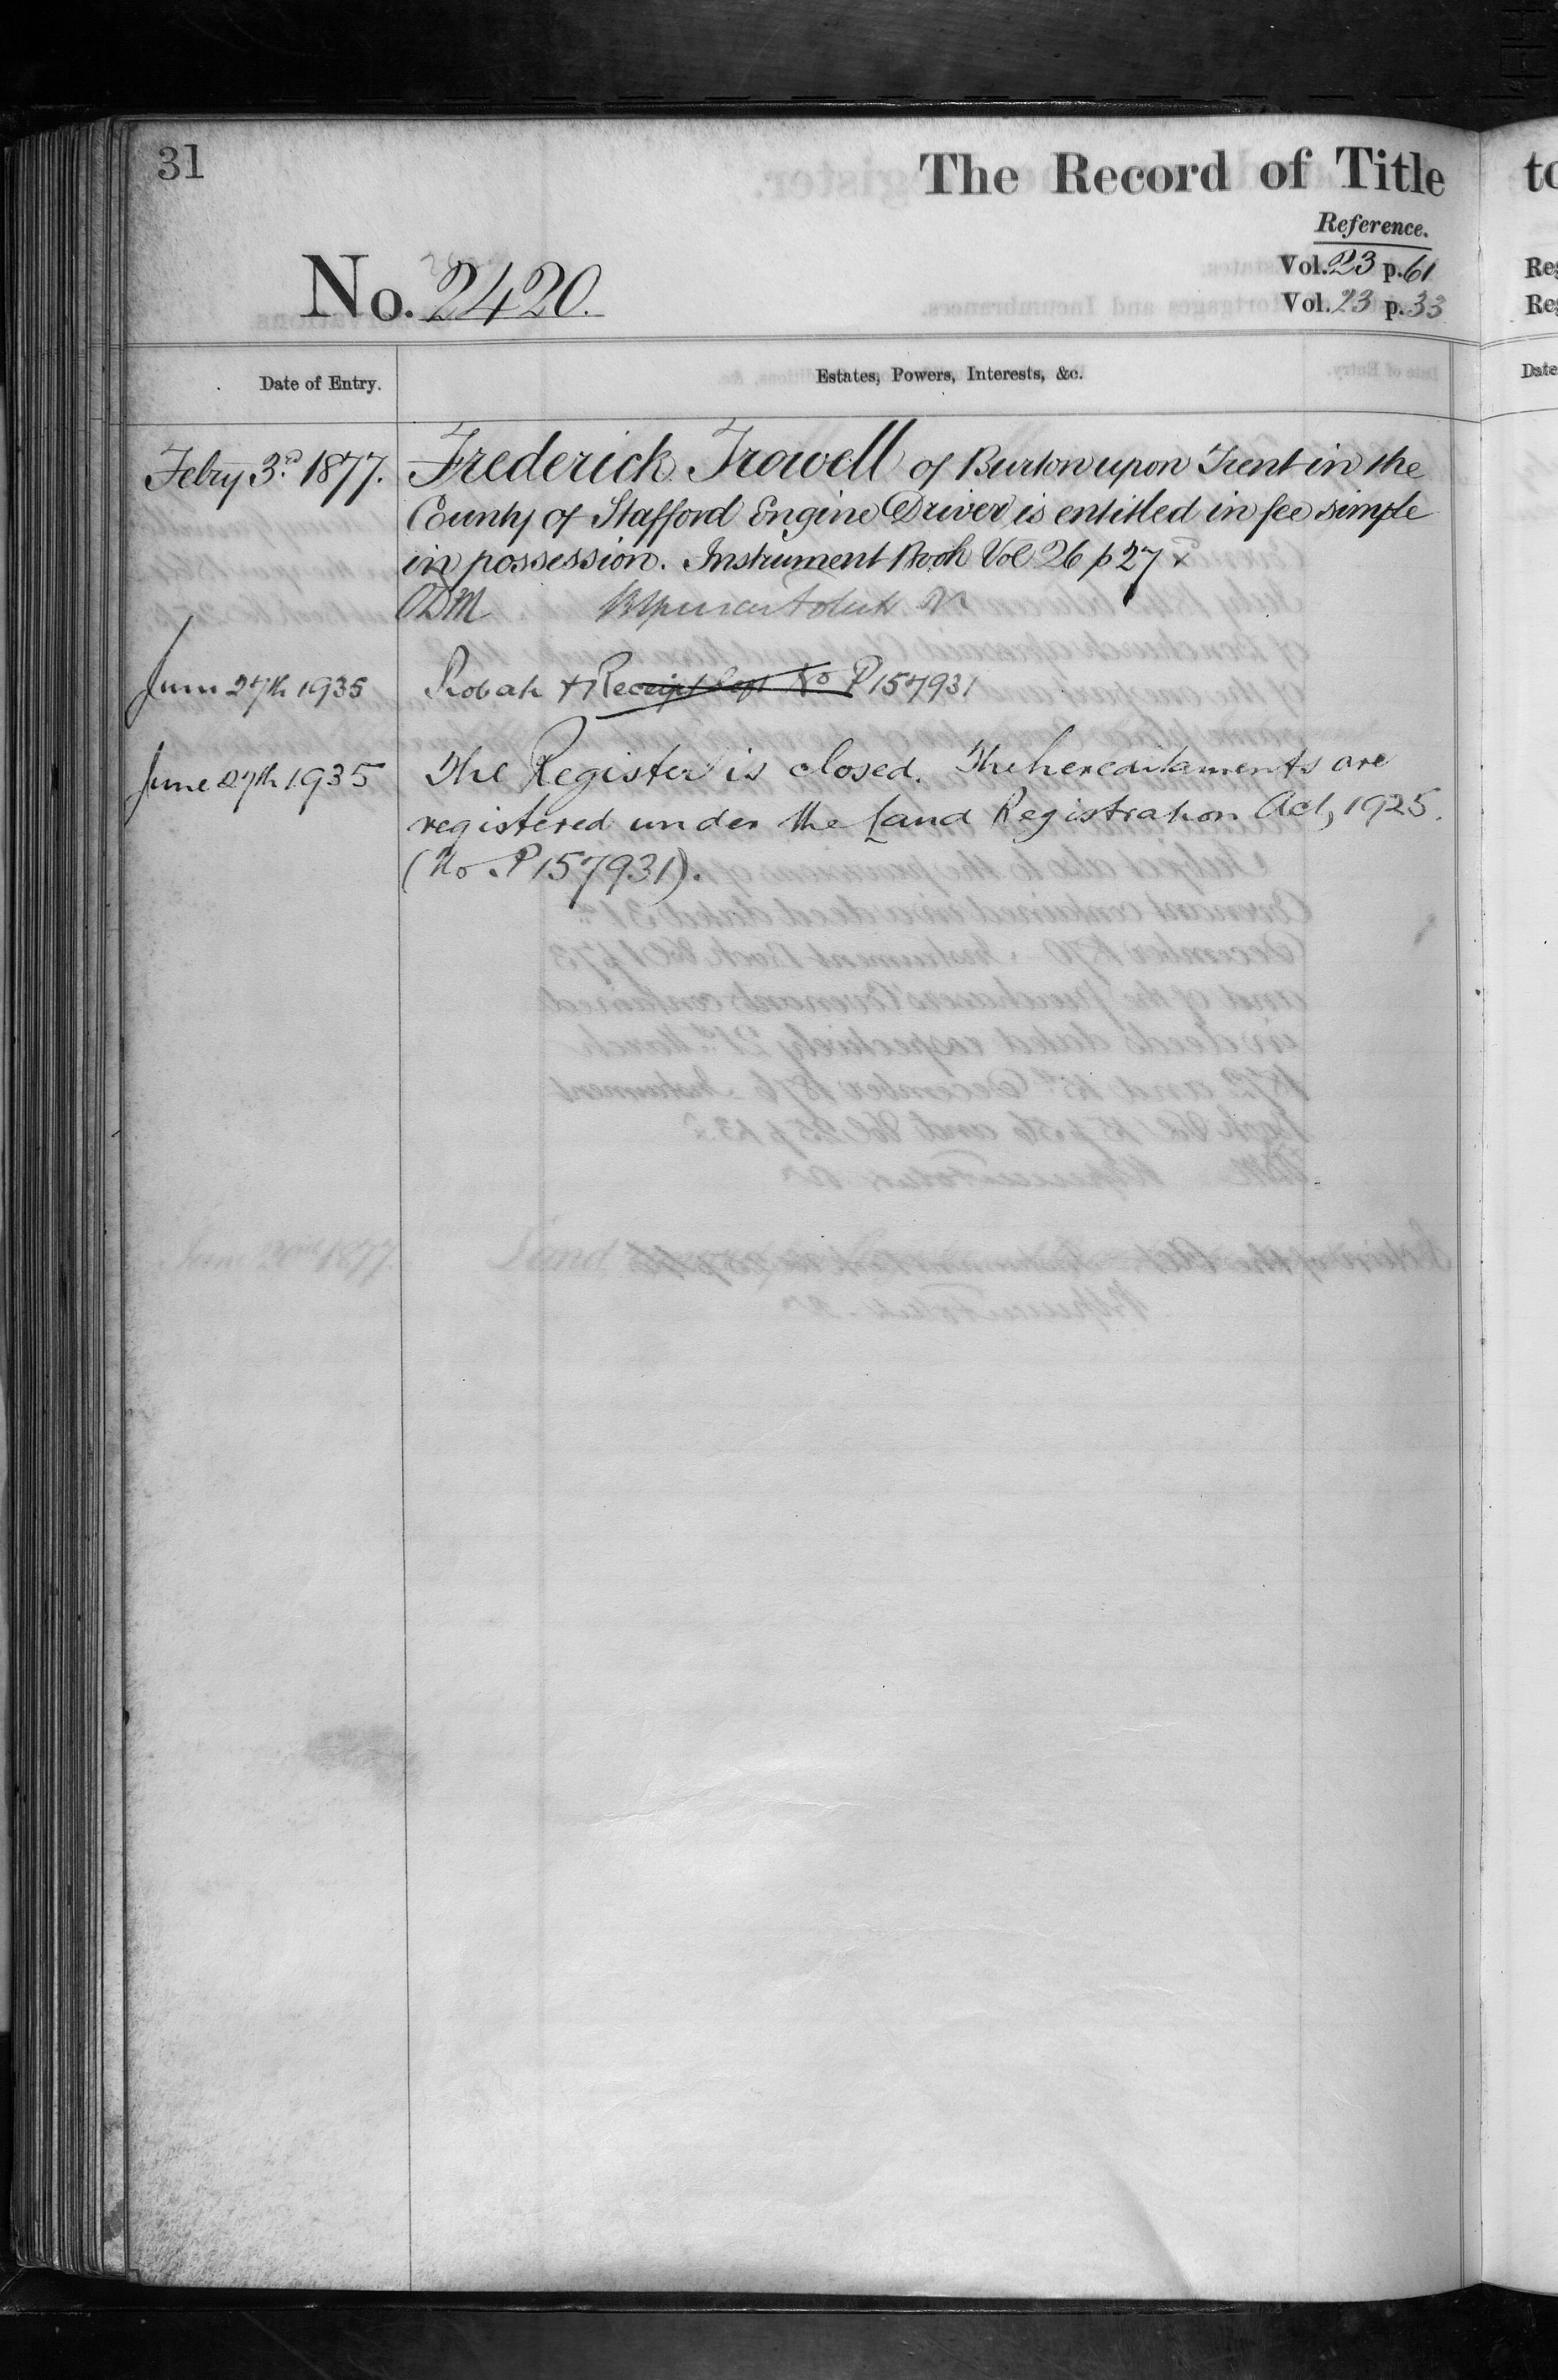 31
The Record of Title
to
Reference.
No. 2420.
Vol. 23 p. 61
Vol. 23 p. 33
Reg
Reg
Date of Entry.
Estates, Powers, Interests, &c.
Date
Febry 3rd 1877.
Frederick Trowell of Burton upon Trent in the
County of Stafford Engine Driver is entitled in fee simple
in possession. Instrument Book Vol 26 p 27
ADM
June 27th 1935
Probate & Receipt Dept No P157931
June 27th 1935
The Register is closed. The hereditaments are
registered under the Land Registration Act, 1925.
(No. P157931).